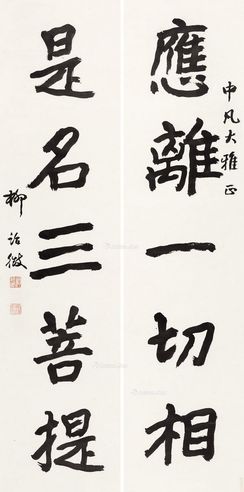 應離一切相
中凡大雅正
是名三菩提
柳詒徵